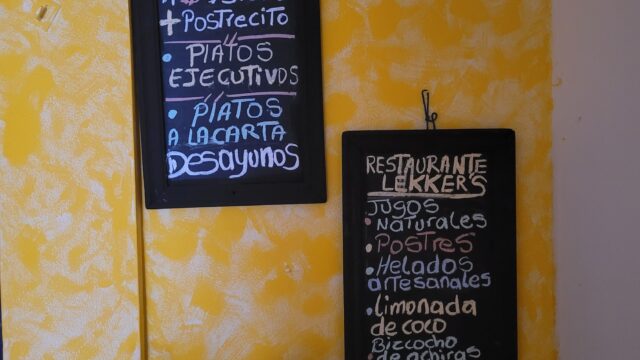 + POSTRECITO
• PLATOS
EJECUTIVOS
• PLATOS
A LA CARTA
DESAYUNOS
RESTAURANTE
LEKKER'S
JUGOS
• NATURALES
• POSTRES
• Helados
artesanales
• limonada
de coco
Bizcocho
de achiras